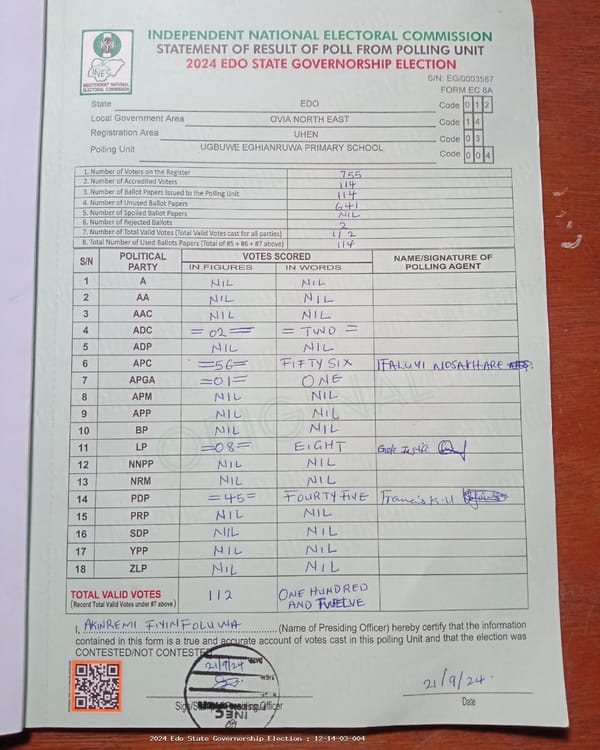 INDEPENDENT NATIONAL ELECTORAL COMMISSION
STATEMENT OF RESULT OF POLL FROM POLLING UNIT
2024 EDO STATE GOVERNORSHIP ELECTION
INEC
INDEPENDENT NATIONAL
ELECTORAL COMMISSION
S/N: EG/0003587
FORM EC 8A
State EDO Code 0 1 2
Local Government Area OVIA NORTH EAST Code 1 4
Registration Area UHEN Code 0 3
Polling Unit UGBUWE EGHIANRUWA PRIMARY SCHOOL Code 0 0 4
1. Number of Voters on the Register 755
2. Number of Accredited Voters 114
3. Number of Ballot Papers Issued to the Polling Unit 114
4. Number of Unused Ballot Papers 641
5. Number of Spoiled Ballot Papers NIL
6. Number of Rejected Ballots 2
7. Number of Total Valid Votes (Total Valid Votes cast for all parties) 112
8. Total Number of Used Ballots Papers (Total of #5 + #6 + #7 above) 114
S/N POLITICAL PARTY VOTES SCORED NAME/SIGNATURE OF POLLING AGENT
IN FIGURES IN WORDS
1 A NIL NIL
2 AA NIL NIL
3 AAC NIL NIL
4 ADC =02= =TWO=
5 ADP NIL NIL
6 APC =56= FIFTY SIX IFALUYI NOSAKHARE
7 APGA =01= ONE
8 APM NIL NIL
9 APP NIL NIL
10 BP NIL NIL
11 LP =08= EIGHT
12 NNPP NIL NIL
13 NRM NIL NIL
14 PDP =45= FOURTY FIVE Francis
15 PRP NIL NIL
16 SDP NIL NIL
17 YPP NIL NIL
18 ZLP NIL NIL
ORIGINAL
TOTAL VALID VOTES 112 ONE HUNDRED AND TWELVE
(Record Total Valid Votes under #7 above)
I, AKINREMI FIYINFOLUWA (Name of Presiding Officer) hereby certify that the information
contained in this form is a true and accurate account of votes cast in this polling Unit and that the election was
CONTESTED/NOT CONTESTED
21/9/24
INEC
Presiding Officer
21/9/24.
Date
2024 Edo State Governorship Election : 12-14-03-004